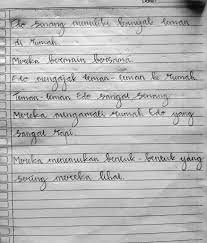 Edo senang memiliki banyak teman
di rumah.
Mereka bermain bersama.
Edo mengajak teman-teman ke rumah
Teman-teman Edo sangat senang
Mereka mengamati rumah Edo yang
sangat rapi.
Mereka menemukan bentuk-bentuk yang
sering mereka lihat.